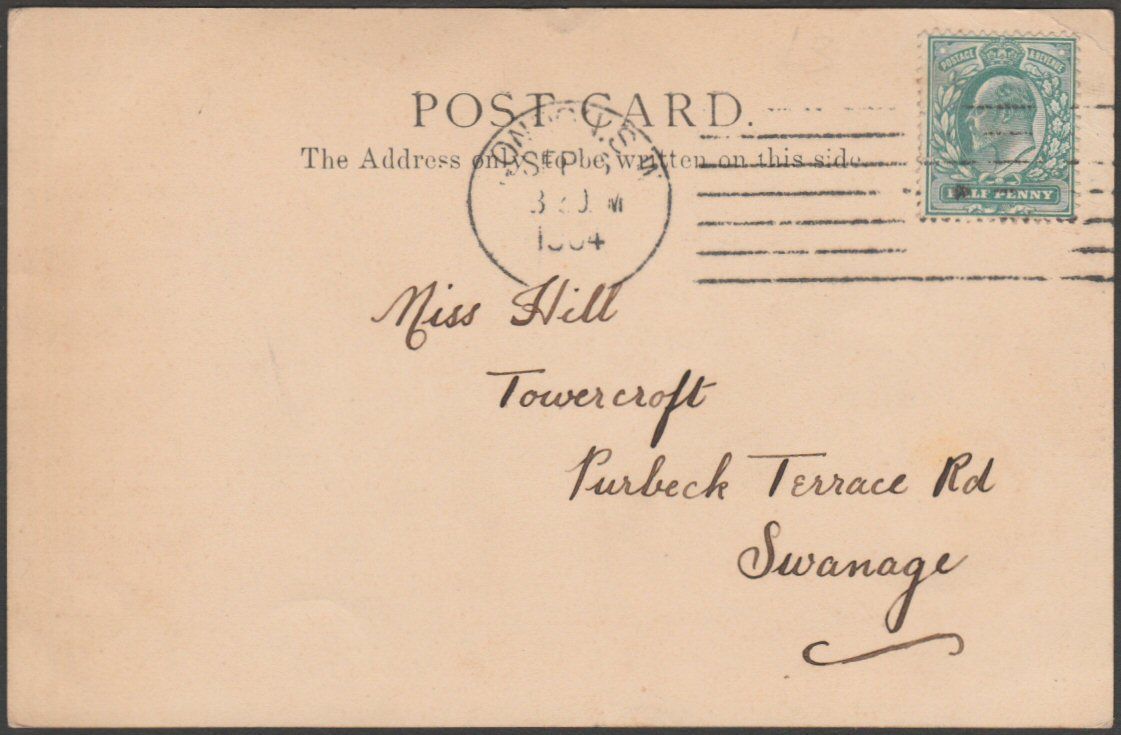 POST CARD.
The Address only to be written on this side.
POSTAGE & REVENUE
HALF PENNY
SEP
1904
Miss Hill
Towercroft
Purbeck Terrace Rd
Swanage